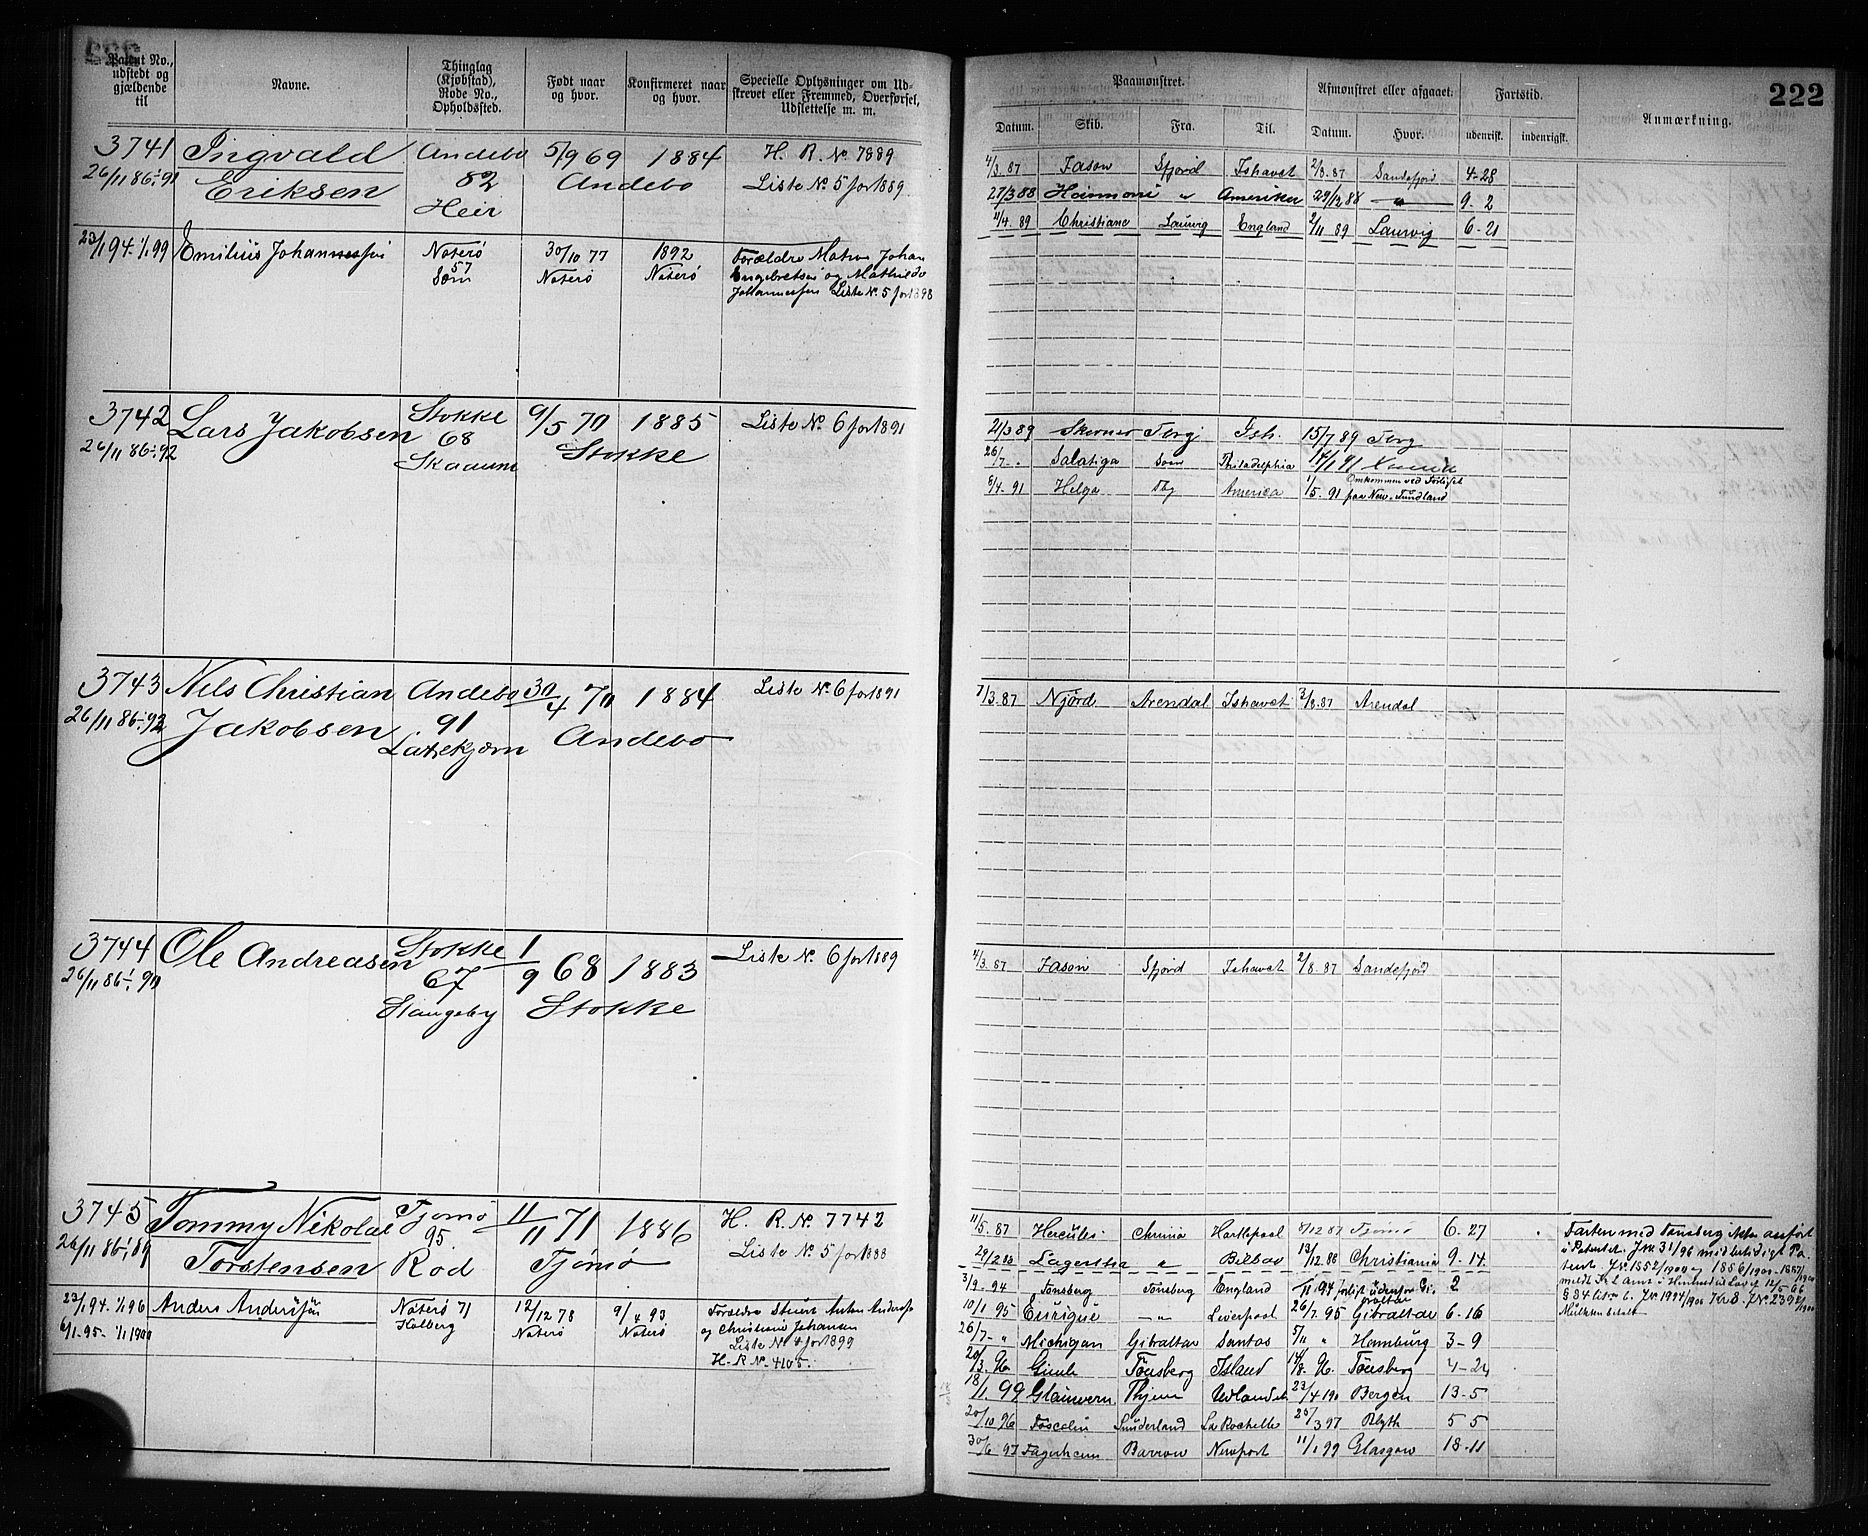 222
Patent No., udstedt og gjældende til
Navne.
Thinglag (Kjøbstad), Rode No., Opholdssted.
Født naar og hvor.
Konfirmeret naar og hvor.
Specielle Oplysninger om Udskrevet eller Fremmed, Overførsel, Udslettelse m. m.
Paamønstret.
Afmønstret eller afgaaet.
Fartstid.
Anmærkning.
Datum. Skib. Fra. Til. Datum. Hvor. udenrigsk. indenrigsk.
3741 Ingvald Andebo 5/9 69 1884 H. R. No 7889
26/11 86-1/1 91 Eriksen 82 Andebo Liste No 5 for 1889
Heir
4/3. 87 Jason Sfjord Ishavet 2/8. 87 Sandefjord 4-28
27/3 88 " Amerika 29/12 88 " 9-2
11/4. 89 Christiane Laurvig England 2/11 89 Laurvig 6-21
23/1 94-1/1 99 Emilius Johannessen Noterø 30/10 77 1892 Forældre Matros Johan
57 Sem Noterø Noterø Engebretsen og Mathilde
Johannessen Liste No 5 for 1898
3742 Lars Jakobsen Stokke 9/5 70 1885 Liste No 6 for 1891
26/11 86-1/1 92 68 Stokke
Skaaum
21/3 89 Tbrg Ish. 15/7 89 Tbrg
26/7 - . Salatiga Philadelphia 14/1 91
6/4. 91 Helga Tbg America 1/5. 91 Omkommen ved Forliset
paa New-Fundland
3743 Nels Christian Andebo 30/4 70 1884 Liste No 6 for 1891
26/11 86-1/1 92 Jakobsen 91 Andebo
7/3. 87 Njörd Arendal Ishavet 2/8. 87 Arendal
3744 Ole Andreasen Stokke 1/9 68 1883 Liste No 6 for 1889
26/11 86-1/1 90 67 Stokke
Slangeby
4/3. 87 Jason Sfjord Ishavet 2/8. 87 Sandefjord
3745 Tommy Nikolai Tjømø 11/11 71 1886 H. R. No. 7742
26/11 86-1/1 89 Torstensen 95 Rød Tjømø Liste No 5 for 1888
11/5. 87 Hercules Chrnia Hartlepool 8/12 87 Tjømø 6-27
29/2 88 Lagertha " Bilbao 13/12 88 Christiania 9-14
23/1 94-1/1 96 Anders Andersen Noterø 71 12/12 78 9/4 93
6/1-95-1/1 1900 Kolberg Noterø Noterø og Christiane Johansen
Liste No 4 for 1899
H. R No. 4105.
3/9. 94 Tønsberg Tønsberg England /11 94 forlist udenfor Gibraltar 2
10/1 95 Eurique " Liverpool 26/7. 95 Gibraltar 6-16
26/7- " Michigan Gibraltar Santos 5/11 " Hamburg 3-9
20/3. 96 Tønsberg Island 14/8. 96. Tønsberg 4-24
18/1. 99 Glaucern Udlandet 23/4 190 Bergen 13-5
20/10 96 Foscolin Sunderland La Rochelle 25/3 97 Blyth 5 5
30/6 97 Fagerheim Barrow Newport 11/1 99 Glasgow 18-11
Farten med Tønsberg ikke anført
i Patentet. J No 31/96